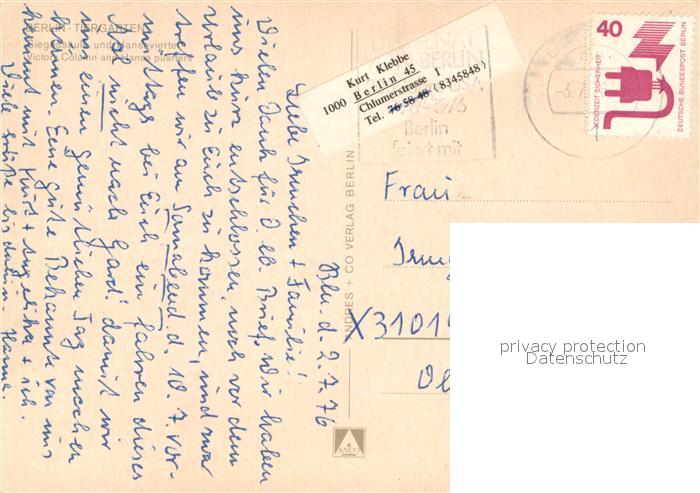 BERLIN - TIERGARTEN
Siegessäule und Hansaviertel
Victory Column and Hansa quarters
Bln. d. 2.7.76
Liebe Irmchen + Familie!
Vielen Dank für D. lb. Brief. Wir haben
uns kurz entschlossen, noch vor dem
Urlaub zu Euch zu kommen, und zwar
treffen wir am Sonnabend d. 10.7. vor-
mittags bei Euch ein, fahren dieses
mal nicht nach Gard. damit wir
uns einen gemütlichen Tag machen
können. Eine gute Bekannte von uns
kommt mit Kurt + Angelika + ich.
Viele Grüße bis dahin. Hanne.
ANDRES + CO VERLAG BERLIN
ANCO
Kurt Klebbe
1000 Berlin 45
Chlumerstrasse 1
Tel. 76 58 48 (8345848)
BERLIN
Berlin
feiert mit
40
JEDERZEIT SICHERHEIT
DEUTSCHE BUNDESPOST BERLIN
Frau
X3101
privacy protection
Datenschutz